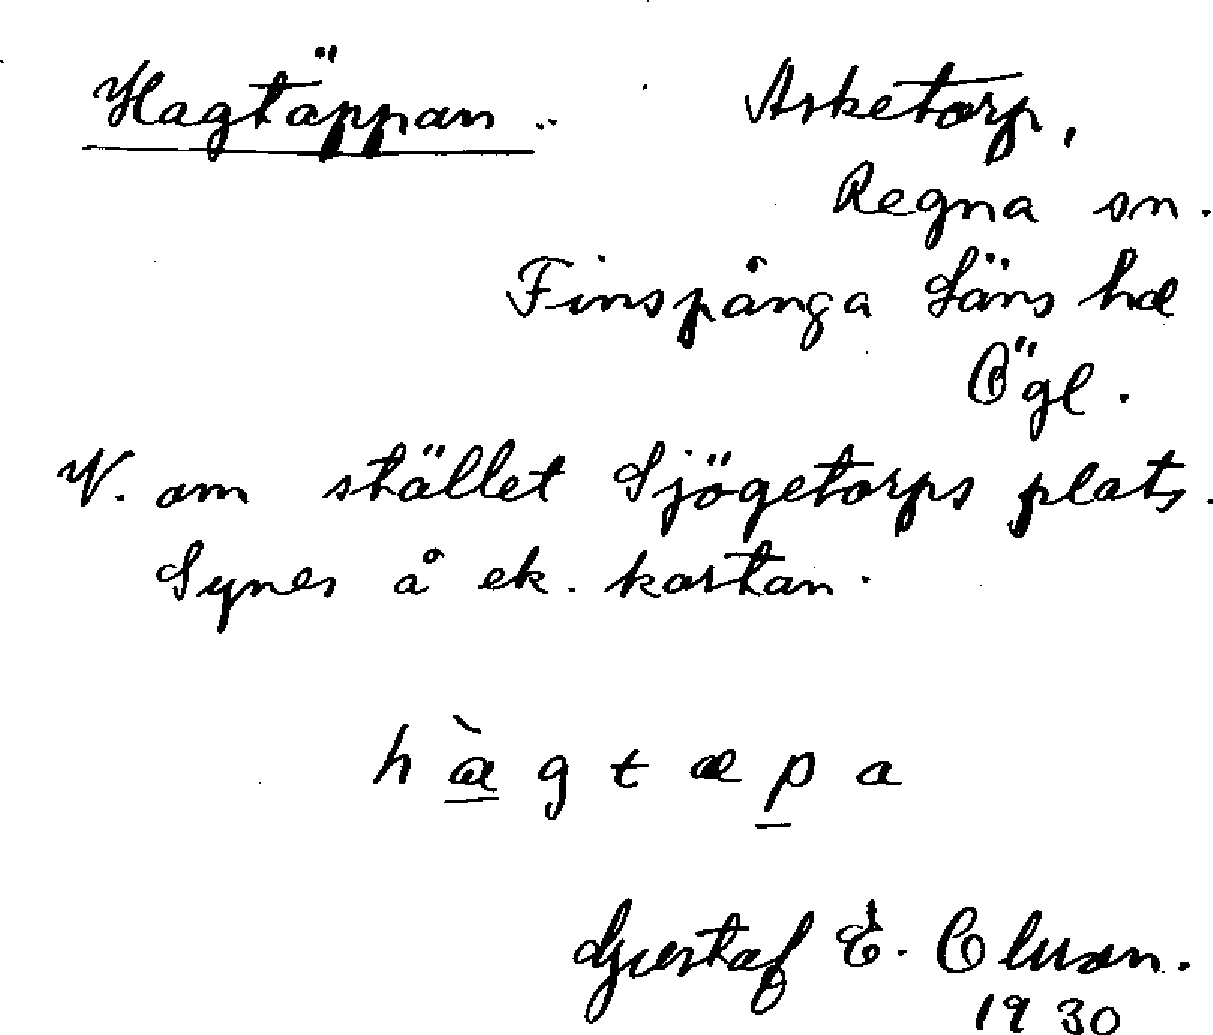 Hagtäppan.. Asketorp,
Regna sn.
Finspånga läns hd
Ögl.
V. om stället Sjögetorps plats.
Synes å ek. kartan.
h à g t æ p a
Gustaf E. Olsson.
1930